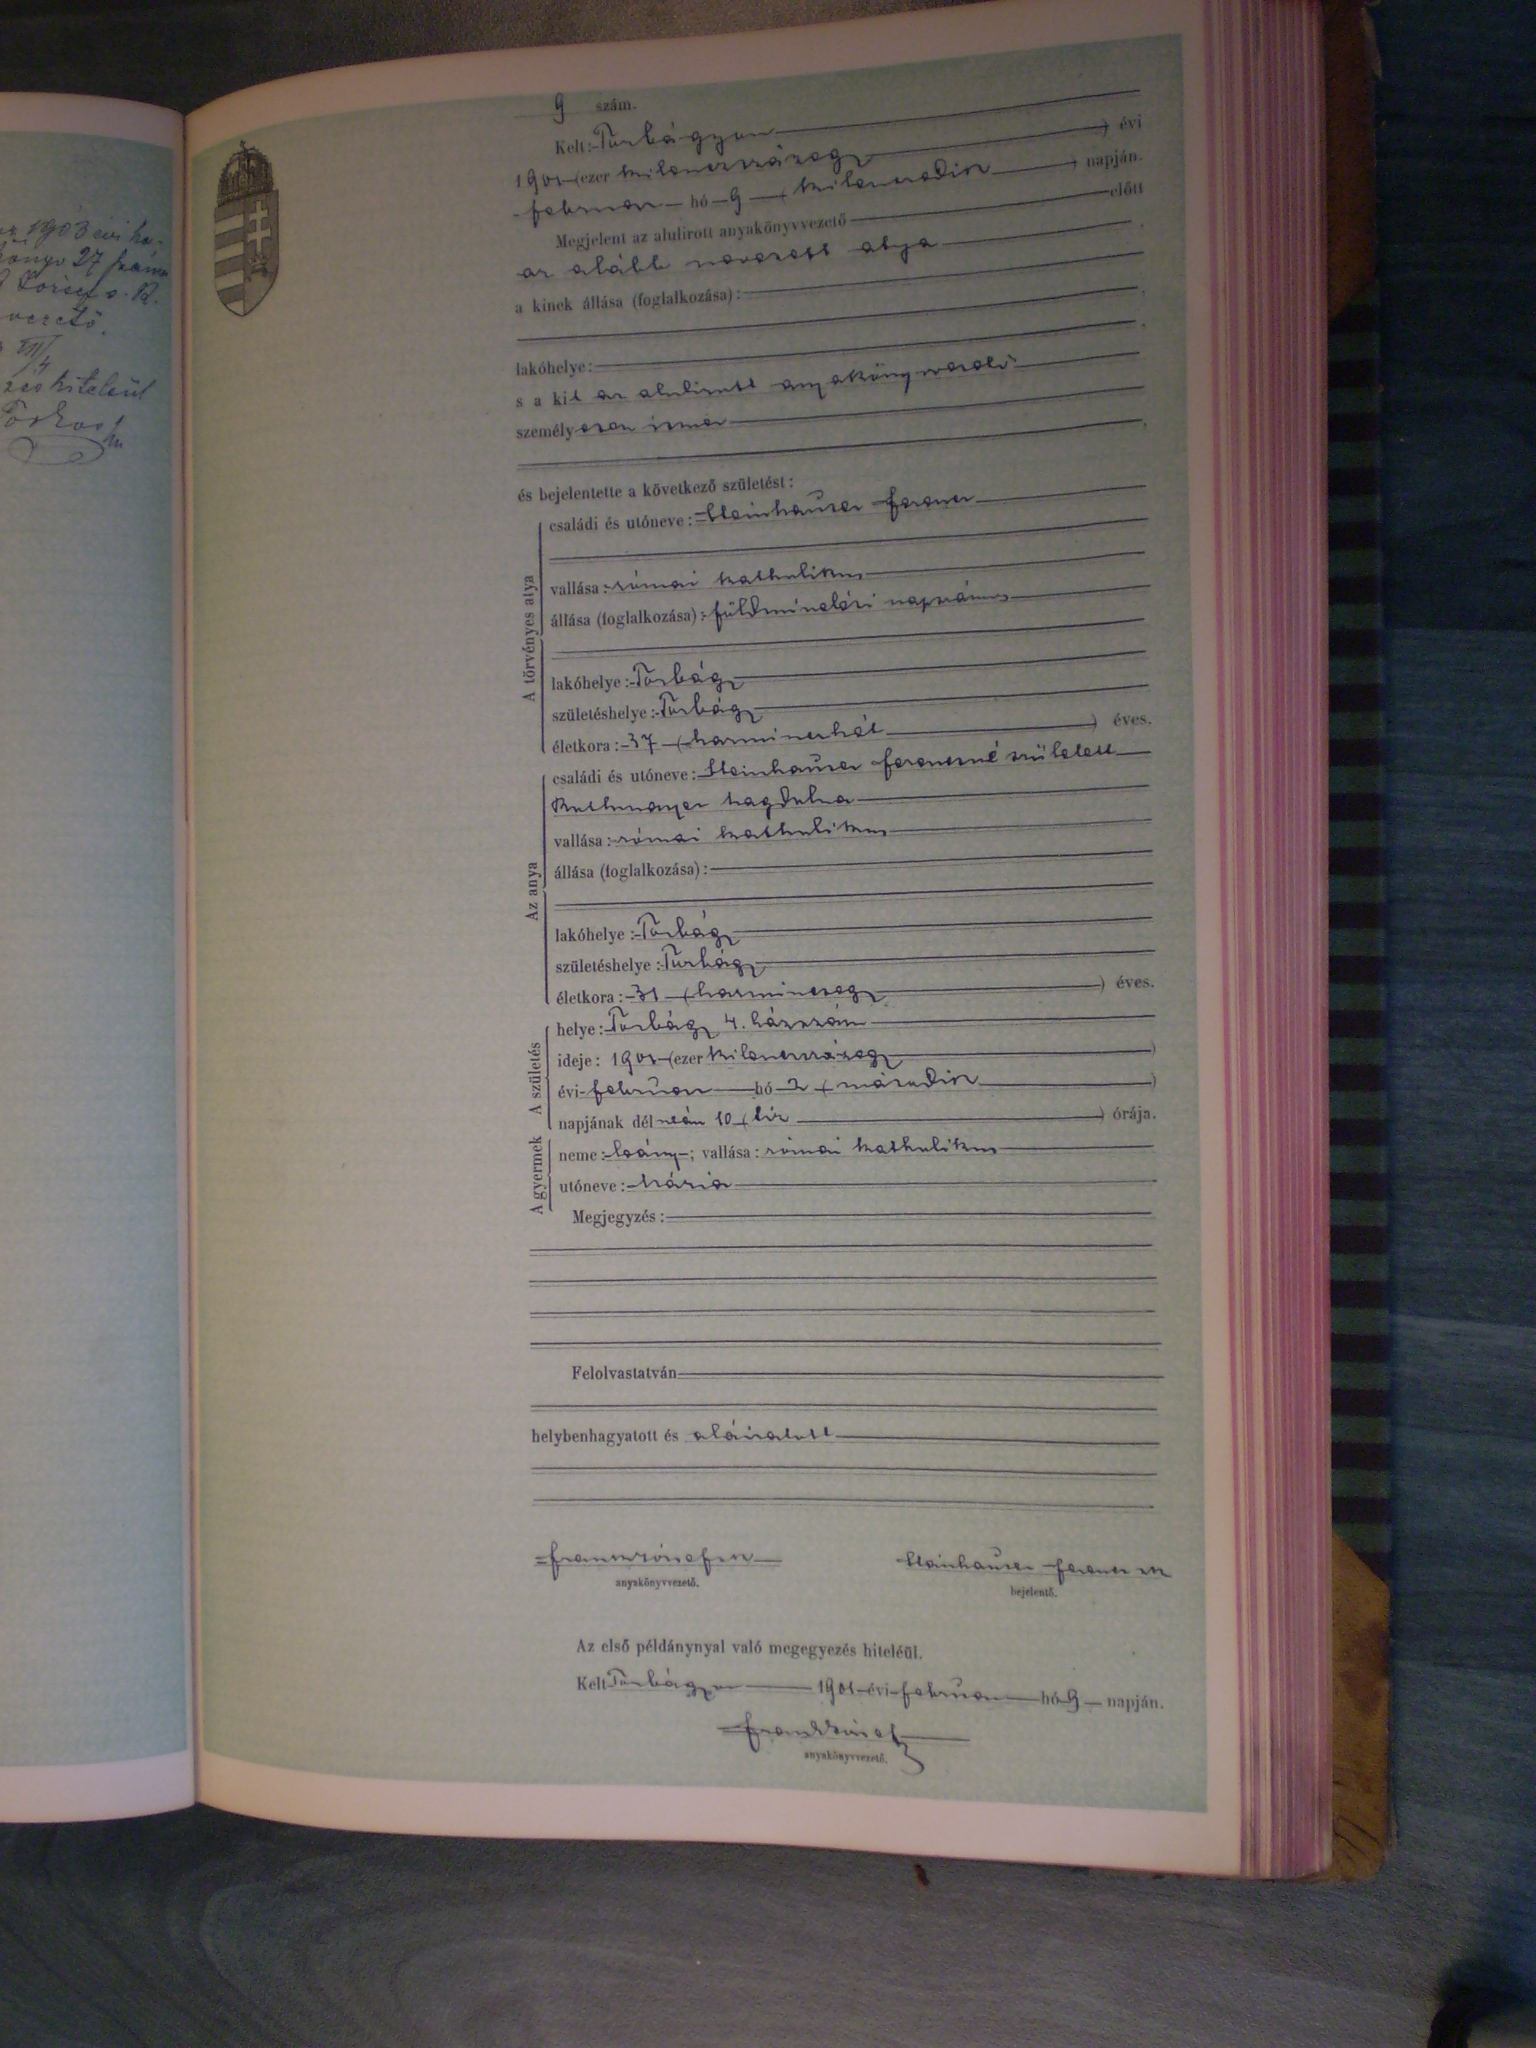 az 1903 évi ha-
könyv 27 szám
József s. k.
vezető.
VII/4
zés hiteléül
9 szám.
Kelt: Torbágyon
1901 (ezer kilenczszázegy) évi
februar hó 9 (kilenczedik) napján.
Megjelent az alulirott anyakönyvvezető előtt
az alább nevezett atya
a kinek állása (foglalkozása):
lakóhelye:
s a kit az alulirott anyakönyvvezető
személyesen ismer
és bejelentette a következő születést:
A törvényes atya
családi és utóneve: Steinhauser Ferencz
vallása: római katholikus
állása (foglalkozása): földmívelési napszámos
lakóhelye: Torbágy
születéshelye: Torbágy
életkora: 37 (harminczhét) éves.
Az anya
családi és utóneve: Steinhauser Ferenczné született
Magdolna
vallása: római katholikus
állása (foglalkozása):
lakóhelye: Torbágy
születéshelye: Torbágy
életkora: 31 (harminczegy) éves.
A születés
helye: Torbágy 4. házszám
ideje: 1901 (ezer kilenczszázegy)
évi februar hó 2 (második)
napjának délután 10 (tíz) órája.
A gyermek
neme: leány; vallása: római katholikus
utóneve: Mária
Megjegyzés:
Felolvastatván
helybenhagyatott és aláiratott
anyakönyvvezető.
Steinhauser Ferencz
bejelentő.
Az első példánynyal való megegyezés hiteléül.
Kelt Torbágyon 1901 évi februar hó 9 napján.
anyakönyvvezető.